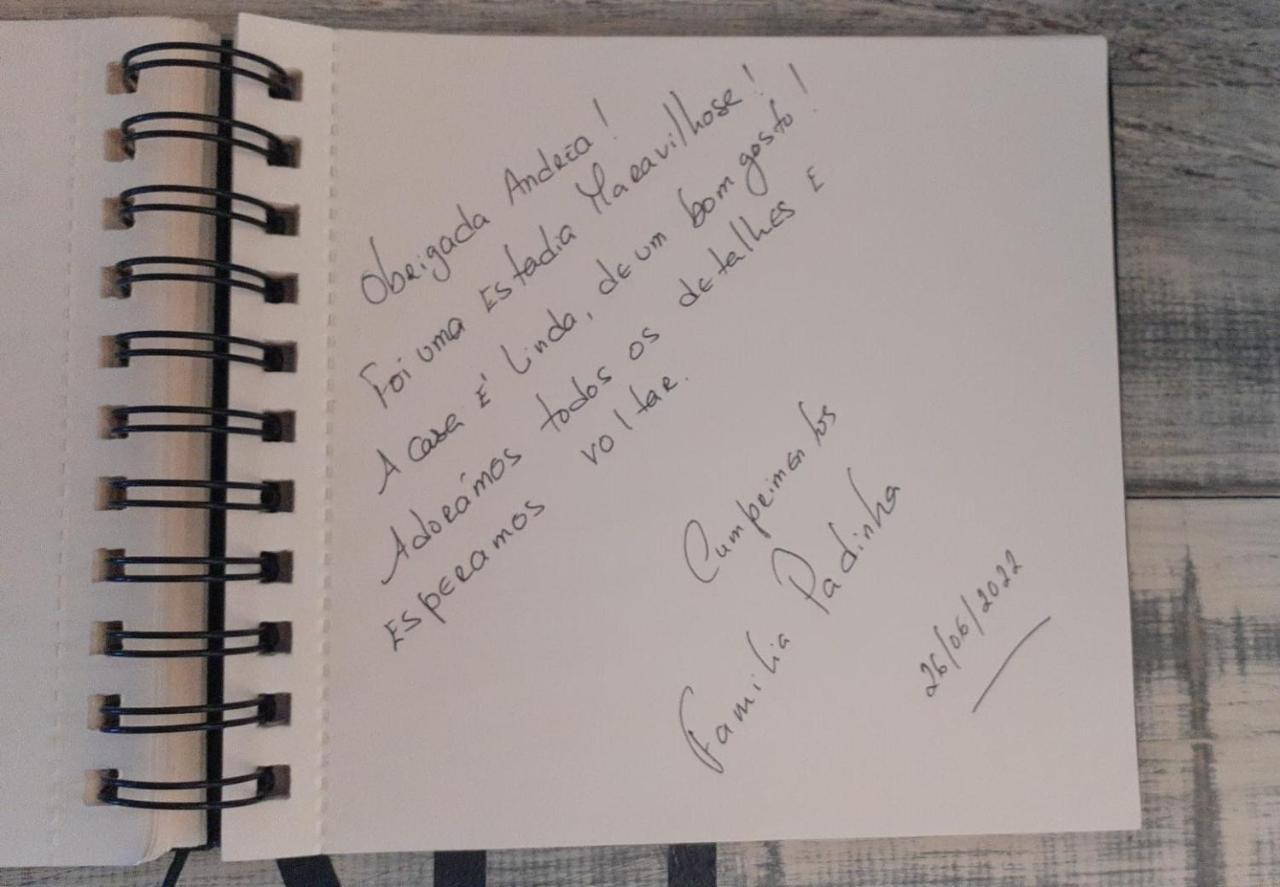 Obrigada Andreia!
Foi uma Estadia Maravilhosa!
A casa É linda, de um bom gosto!
Adorámos todos os detalhes E
Esperamos voltar.
Cumprimentos
Familia Padinha
26/06/2022